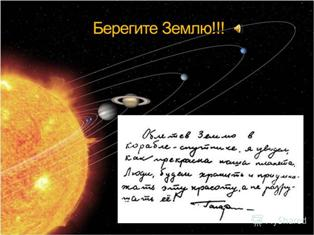 Берегите Землю!!!
Облетев Землю в
корабле-спутнике, я увидел,
как прекрасна наша планета.
Люди, будем хранить и приумно-
жать эту красоту, а не разру-
шать её!
Гагарин
MyShared